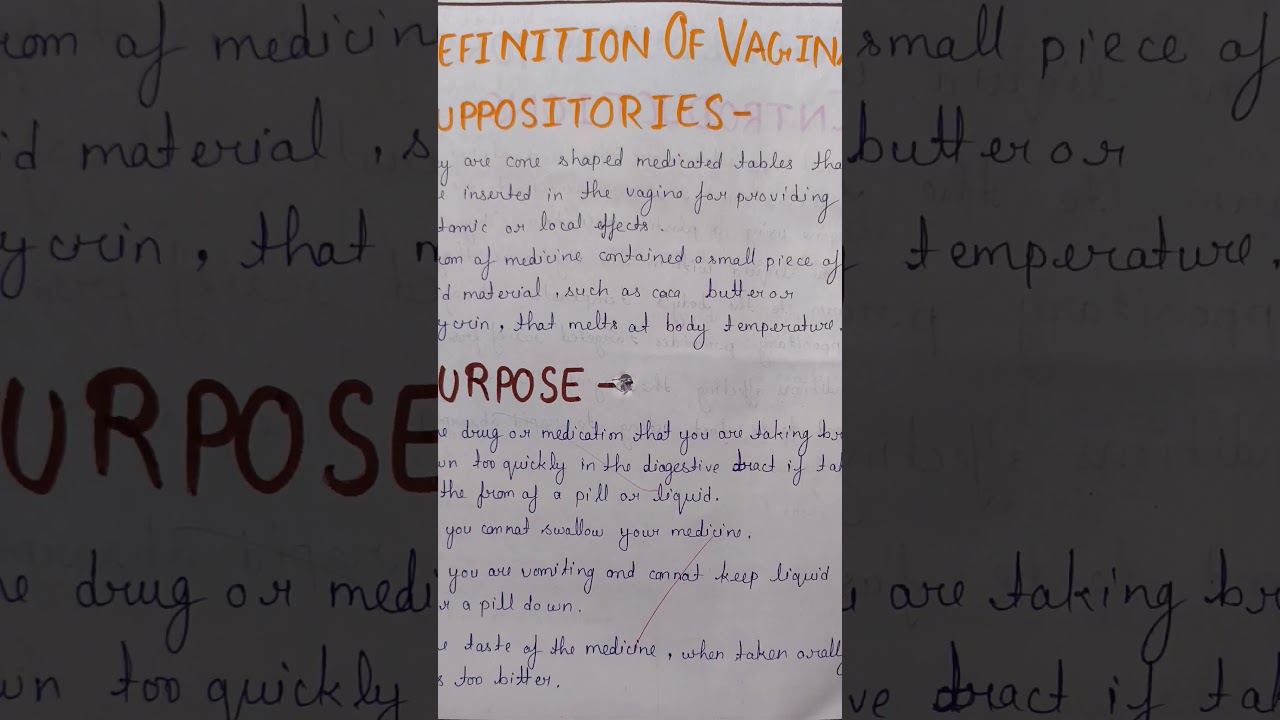 EFINITION OF VAGINA
UPPOSITORIES-
y are cone shaped medicated tables tha
e inserted in the vagina for providing
tamic or local effects.
rom of medicine contained a small piece of
id material, such as coca butter or
ycrin, that melts at body temperature.
URPOSE -
e drug or medication that you are taking br
wn too quickly in the diagestive tract if tak
the from of a pill or liquid.
you cannat swallow your medicine.
you are vomiting and cannat keep liquid
r a pill down.
e taste of the medicine, when taken orally
s too bitter.